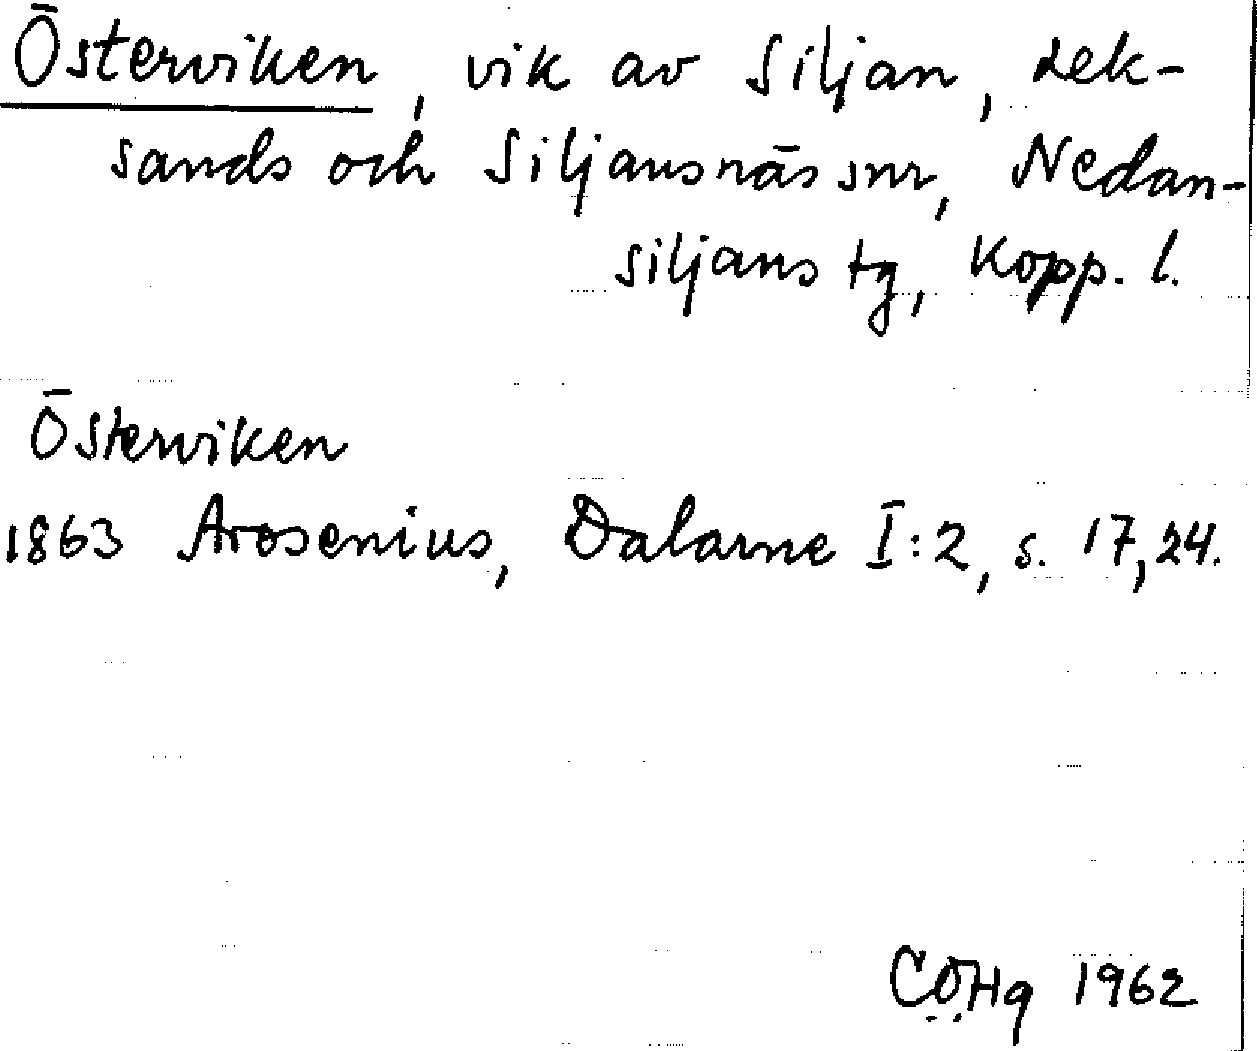 Österviken, vik av Siljan, Lek-
sands och Siljansnäs snr, Nedan-
siljans tg, Kopp. l.
Österviken
1863 Arosenius, Dalarne I:2, s. 17, 24.
CÖHg 1962